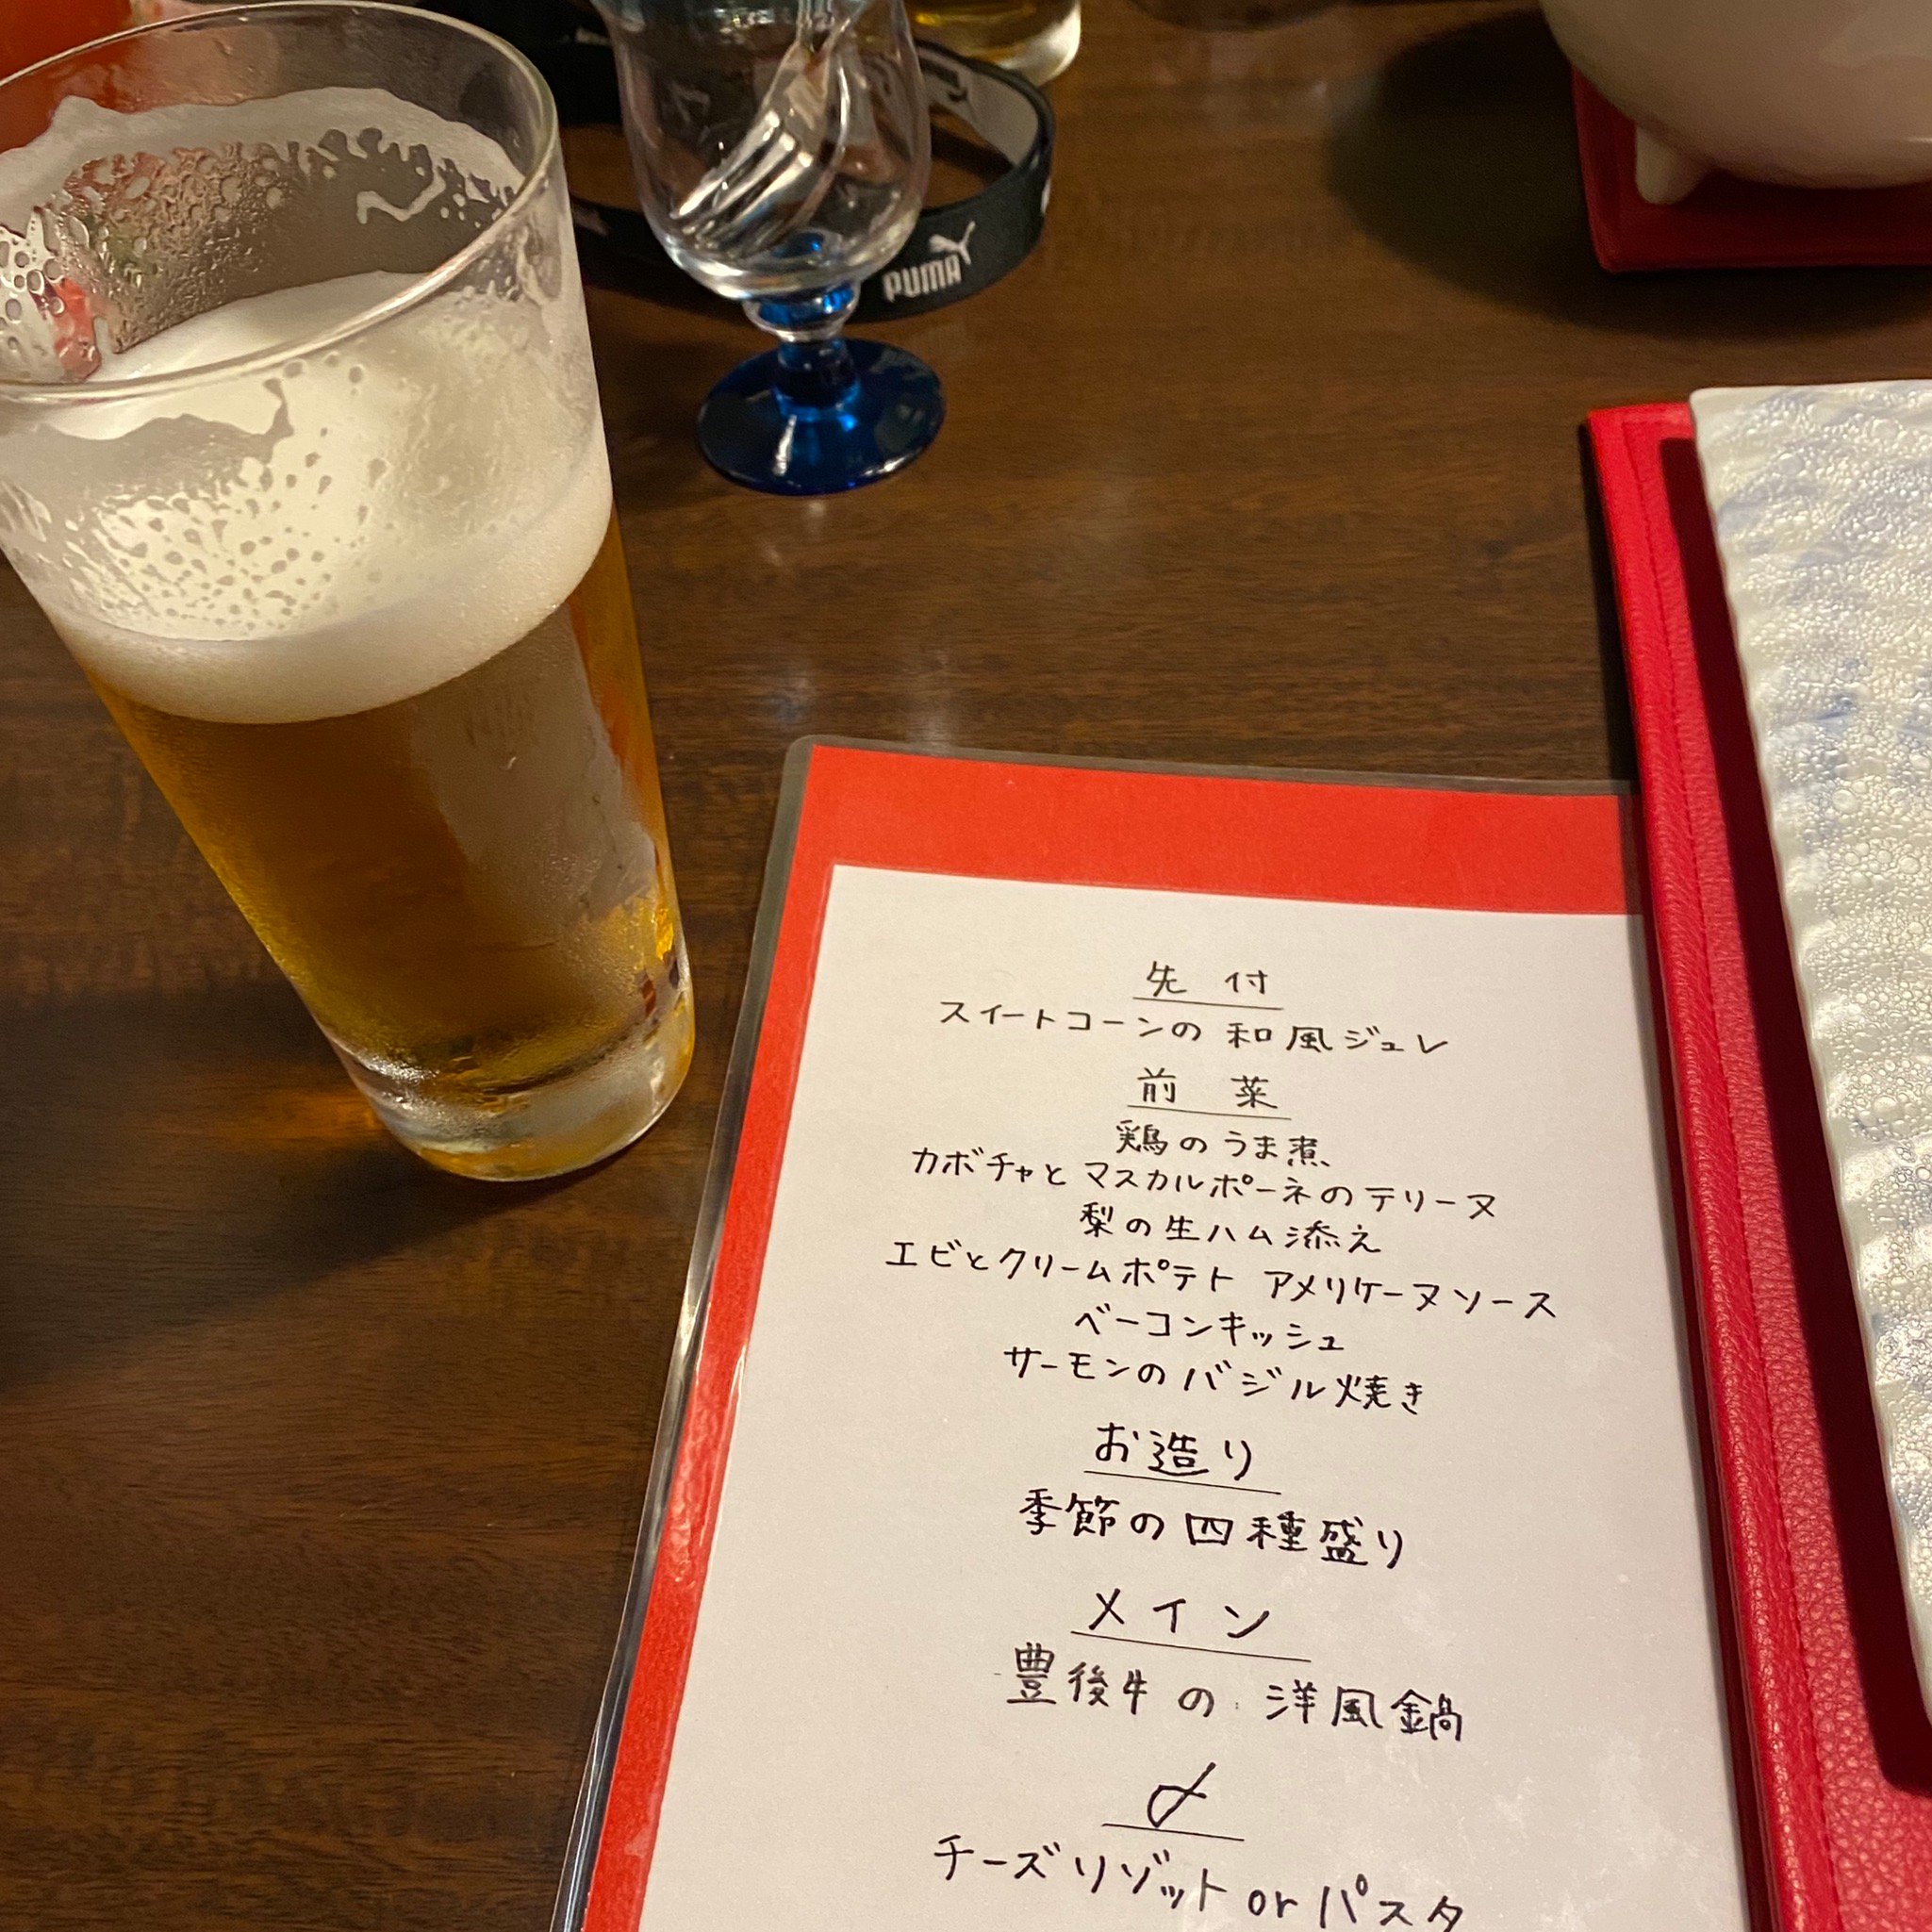 PUMA
先付
スイートコーンの和風ジュレ
前菜
鶏のうま煮
カボチャとマスカルポーネのテリーヌ
梨の生ハム添え
エビとクリームポテト アメリケーヌソース
ベーコンキッシュ
サーモンのバジル焼き
お造り
季節の四種盛り
メイン
豊後牛の洋風鍋
〆
チーズリゾット or パスタ